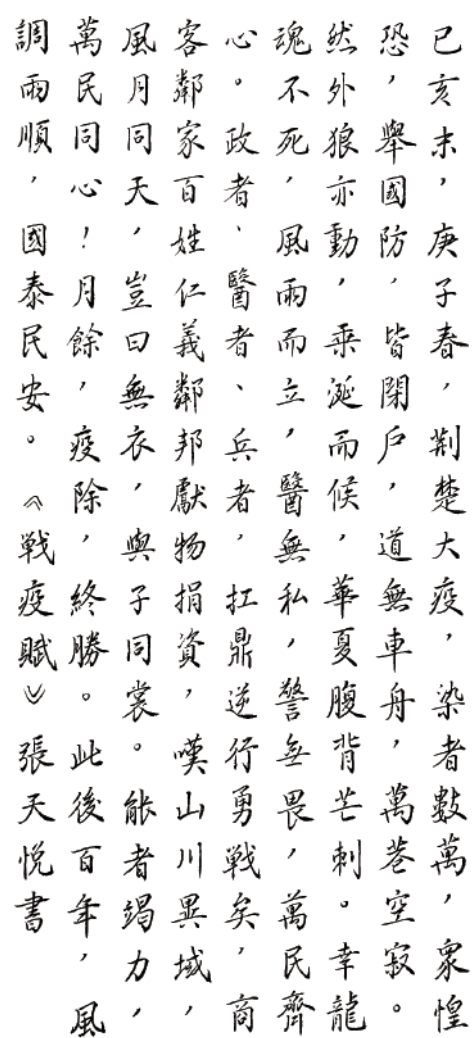 已亥末，庚子春，荆楚大疫，染者數萬，衆惶
恐，舉國防，皆閉户，道無車舟，萬巷空寂。
然外狼亦動，乘涎而候，華夏腹背芒刺。幸龍
魂不死，風雨而立，醫無私，警無畏，萬民齊
心。政者、醫者、兵者，扛鼎逆行勇戦矣，商
客鄰家百姓仁義鄰邦獻物捐資，嘆山川異域，
風月同天，豈曰無衣，與子同裳。能者竭力，
萬民同心！月餘，疫除，終勝。此後百年，風
調雨順，國泰民安。《戦疫賦》張天悦書